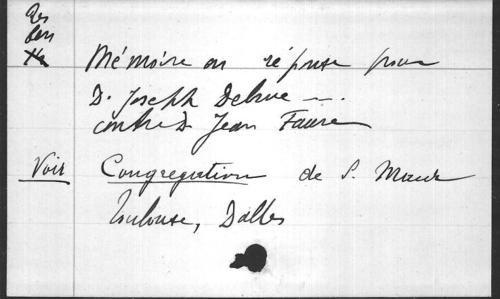 Res
den
Mémoire en réponse pour
D. Joseph Delrue ---.
contre D. Jean Faure
Voir Congregation de S. Maur
Toulouse, Dalles